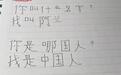 你叫什么名字？
我叫阿兰
你是哪国人？
我是中国人